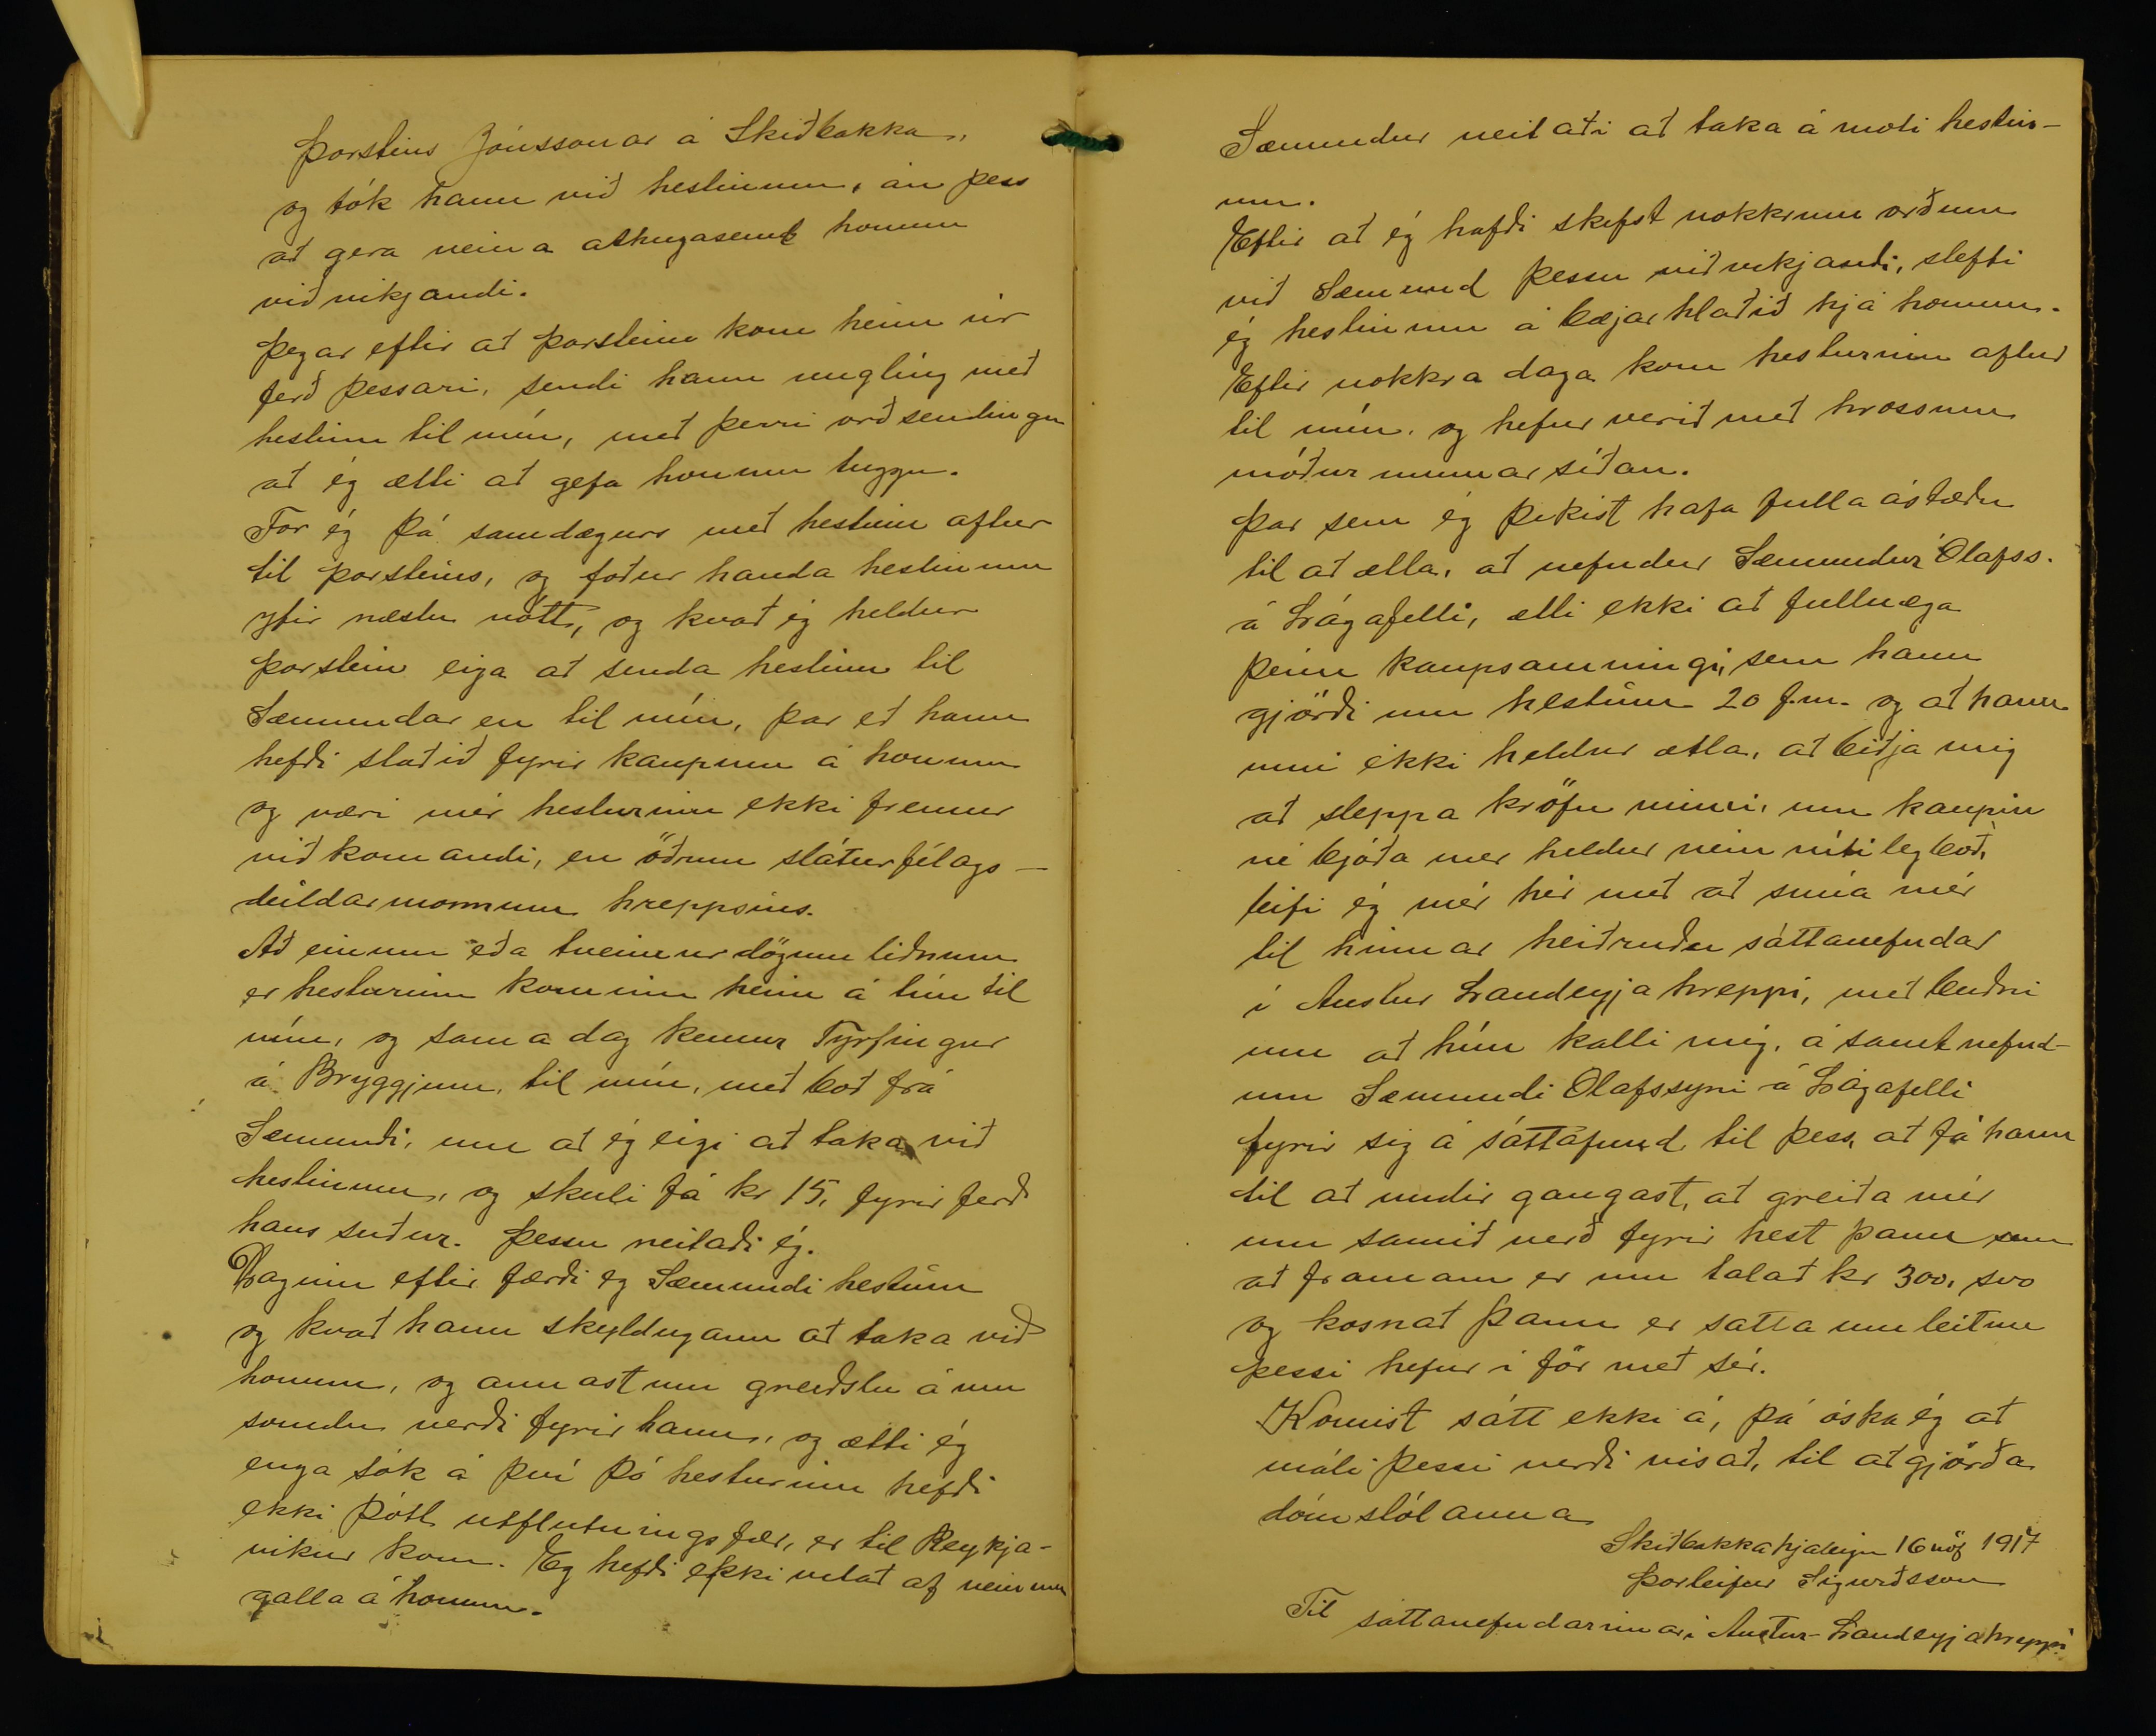 Þorsteins Jónssonar á Skíðbakka,
og tók hann við hestinum, án þess
að gera neina athugasemd honum
viðvikjandi.
Þegar eftir að Þorsteinn kom heim úr
ferð þessari, sendi hann ungling með
hestinn til mín, með þerri orðsendingu
að ég ætti að gefa honum tuggu.
Fór ég þá samdægurs með hestinn aftur
til Þorsteins, og fóður handa hestinum
yfir næstu nótt, og kvað ég heldur
Þorstein eiga að senda hestinn til
Sæmundar en til mín, þar eð hann
hefði staðið fyrir kaupum á honum
og væri mér hesturinn ekki fremur
viðkomandi, en öðrum sláturfélags-
deildarmonnum hreppsins.
Að einum eða tveimur dögum liðnum
er hesturinn kominn heim á tún til
mín, og sama dag kemur Tyrfingur
á Bryggjum, til mín, með boð frá
Sæmundi, um að ég eigi að taka við
hestinum, og skuli fá kr 15, fyrir ferð
hans suður. Þessu neitaði ég.
Daginn eftir færði eg Sæmundi hestinn
og kvað hann skyldugann að taka við
honum, og annast um greiðslu á um
sömdu verði fyrir hann, og ætti ég
enga sök á því þó hesturinn hefði
ekki þótt utflutningsfær, er til Reykja-
vikur kom. Eg hefði ekki vitað af neinum
galla á honum.
Sæmundur neitaði að taka á moti hestin-
um.
Eftir að ég hafði skifst nokkrum orðum
við Sæmund þessu viðvikjandi, slefti
ég hestinum á bæjarhlaðið hjá honum.
Eftir nokkra daga kom hesturinn aftur
til mín, og hefur verið með hrossum
móður minnar síðan.
Þar sem ég þikist hafa fulla ástæðu
til að ætla, að nefndur Sæmundur Olafss.
á Lágafelli, ætli ekki að fullnæga
þeim kaupsamningi, sem hann
gjörði um hestinn 20 f.m. og að hann
muni ekki heldur ætla, að biðja mig
að sleppa kröfu minni, um kaupin
né bjóða mer heldur nein nítileg boð,
leifi ég mér hér með að snúa mér
til hinnar heiðruðu sáttanefndar
í Austur Landeyja hreppi, með beiðni
um að hún kalli mig, á samt nefnd-
um Sæmundi Olafssyni á Lágafelli
fyrir sig á sáttafund, til þess, at fá hann
til að undir gangast, að greiða mér
um samið verð fyrir hest þann sem
að framan er um talað kr 300, svo
og kosnað þann er satta umleitun
þessi hefur í för með sér.
Komist sátt ekki á, þá óska ég að
máli þessi verði visað, til aðgjörða
dómstólanna
Skíðbakkahjáleigu 16 nóf 1917
Þorleifur Sigurðsson
Til sáttanefndarinnar í Austur-Landeyjahreppi